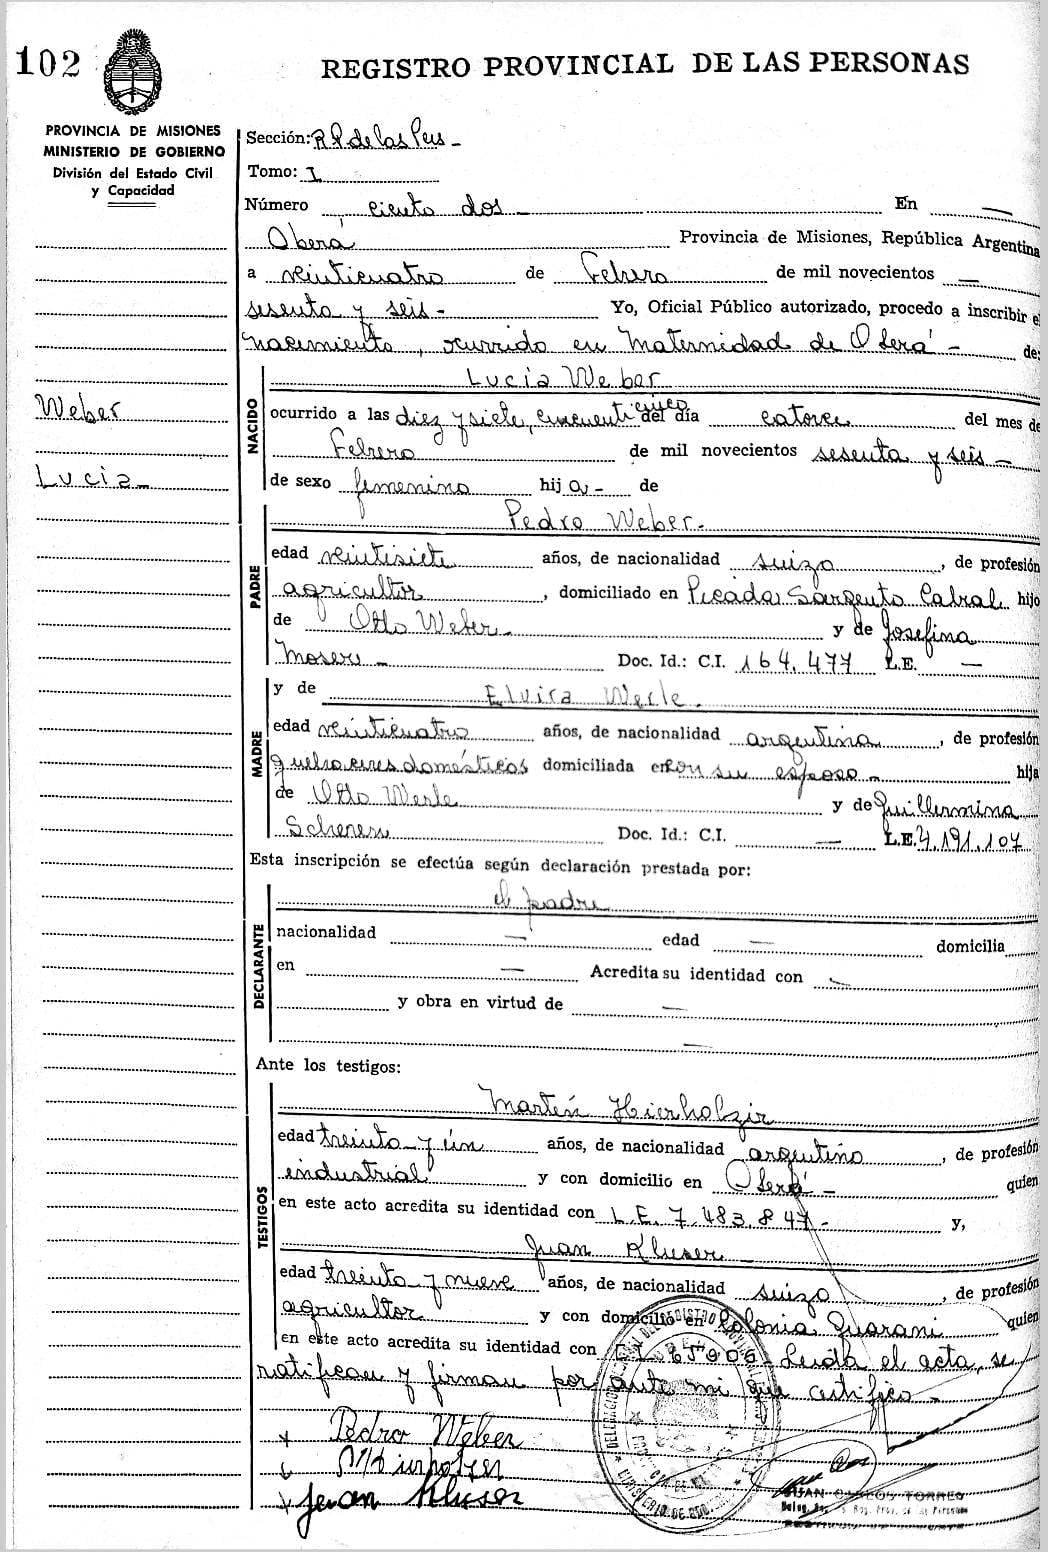 102
REGISTRO PROVINCIAL DE LAS PERSONAS
PROVINCIA DE MISIONES
MINISTERIO DE GOBIERNO
División del Estado Civil
y Capacidad
Weber
Lucia -
Sección: R.P. de las Pers -
Tomo: I
Número ciento dos - En —
Oberá Provincia de Misiones, República Argentina
a veinticuatro de Febrero de mil novecientos —
sesenta y seis - Yo, Oficial Público autorizado, procedo a inscribir el
nacimiento, ocurrido en Maternidad de Oberá - de:
NACIDO
Lucia Weber
ocurrido a las diez y siete, cincuenticinco del día catorce del mes de
Febrero de mil novecientos sesenta y seis -
de sexo femenino hij a - de
PADRE
Pedro Weber -
edad veintisiete años, de nacionalidad suizo, de profesión
agricultor, domiciliado en Picada Sargento Cabral hijo
de Otto Weber - y de Josefina
Moser - Doc. Id.: C.I. 164.477 L.E. —
MADRE
y de Elvira Werle.
edad veinticuatro años, de nacionalidad argentina, de profesión
quehaceres domésticos domiciliada en con su esposo - hija
de Otto Werle y de Guillermina
Doc. Id.: C.I. — L.E. 4.191.107
Esta inscripción se efectúa según declaración prestada por:
DECLARANTE
el padre
nacionalidad — edad — domicilia
en — Acredita su identidad con —
y obra en virtud de —
—
Ante los testigos:
TESTIGOS
Martín
edad treinta y ún años, de nacionalidad argentino, de profesión
industrial y con domicilio en Oberá - quien
en este acto acredita su identidad con L.E. 7.483.847 - y,
Juan Kluser
edad treinta y nueve años, de nacionalidad suizo, de profesión
agricultor y con domicilio en Colonia Guarani quien
en este acto acredita su identidad con Leída el acta, se
ratifican y firman por ante mi que certifico -
x Pedro Weber
x Jean Kluser
JUAN CARLOS TORRES